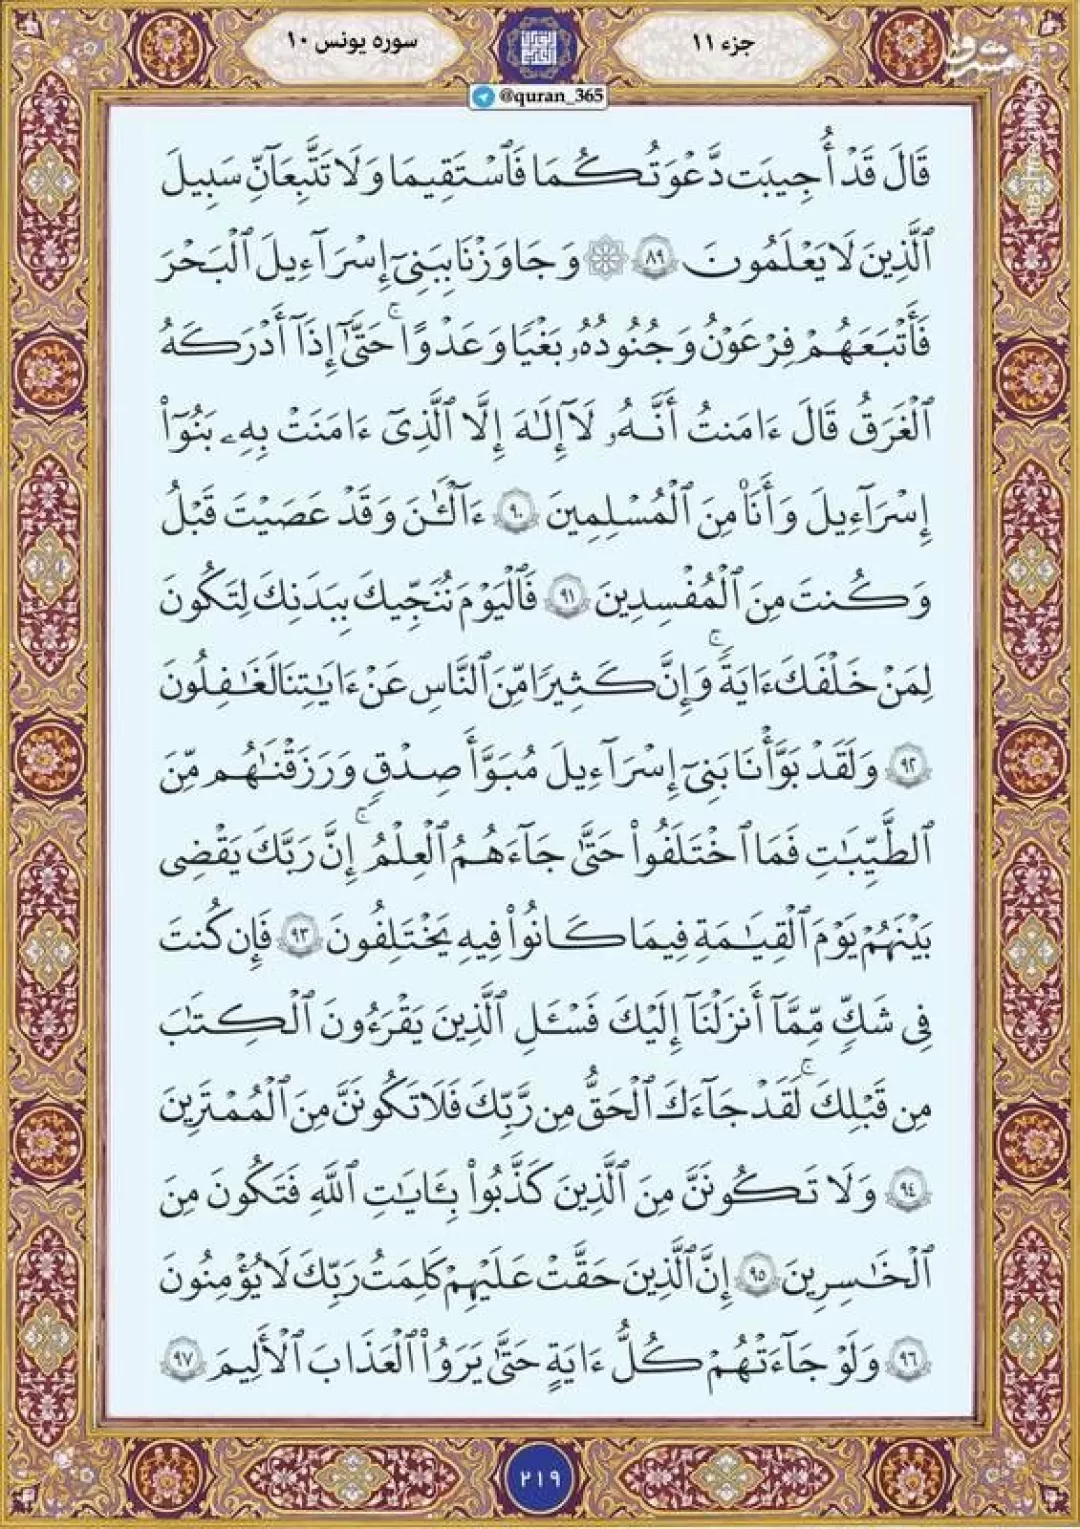 سوره یونس ۱۰
جزء ۱۱
@quran_365
مشرق
قَالَ قَدْ أُجِيبَت دَّعْوَتُكُمَا فَٱسْتَقِيمَا وَلَا تَتَّبِعَآنِّ سَبِيلَ
ٱلَّذِينَ لَا يَعْلَمُونَ ٨٩ ۞ وَجَاوَزْنَا بِبَنِىٓ إِسْرَآءِيلَ ٱلْبَحْرَ
فَأَتْبَعَهُمْ فِرْعَوْنُ وَجُنُودُهُۥ بَغْيًا وَعَدْوًا ۖ حَتَّىٰٓ إِذَآ أَدْرَكَهُ
ٱلْغَرَقُ قَالَ ءَامَنتُ أَنَّهُۥ لَآ إِلَـٰهَ إِلَّا ٱلَّذِىٓ ءَامَنَتْ بِهِۦ بَنُوٓا۟
إِسْرَآءِيلَ وَأَنَا۠ مِنَ ٱلْمُسْلِمِينَ ٩٠ ءَآلْـَٔـٰنَ وَقَدْ عَصَيْتَ قَبْلُ
وَكُنتَ مِنَ ٱلْمُفْسِدِينَ ٩١ فَٱلْيَوْمَ نُنَجِّيكَ بِبَدَنِكَ لِتَكُونَ
لِمَنْ خَلْفَكَ ءَايَةً ۚ وَإِنَّ كَثِيرًا مِّنَ ٱلنَّاسِ عَنْ ءَايَـٰتِنَا لَغَـٰفِلُونَ
٩٢ وَلَقَدْ بَوَّأْنَا بَنِىٓ إِسْرَآءِيلَ مُبَوَّأَ صِدْقٍ وَرَزَقْنَـٰهُم مِّنَ
ٱلطَّيِّبَـٰتِ فَمَا ٱخْتَلَفُوا۟ حَتَّىٰ جَآءَهُمُ ٱلْعِلْمُ ۚ إِنَّ رَبَّكَ يَقْضِى
بَيْنَهُمْ يَوْمَ ٱلْقِيَـٰمَةِ فِيمَا كَانُوا۟ فِيهِ يَخْتَلِفُونَ ٩٣ فَإِن كُنتَ
فِى شَكٍّ مِّمَّآ أَنزَلْنَآ إِلَيْكَ فَسْـَٔلِ ٱلَّذِينَ يَقْرَءُونَ ٱلْكِتَـٰبَ
مِن قَبْلِكَ ۚ لَقَدْ جَآءَكَ ٱلْحَقُّ مِن رَّبِّكَ فَلَا تَكُونَنَّ مِنَ ٱلْمُمْتَرِينَ
٩٤ وَلَا تَكُونَنَّ مِنَ ٱلَّذِينَ كَذَّبُوا۟ بِـَٔايَـٰتِ ٱللَّهِ فَتَكُونَ مِنَ
ٱلْخَـٰسِرِينَ ٩٥ إِنَّ ٱلَّذِينَ حَقَّتْ عَلَيْهِمْ كَلِمَتُ رَبِّكَ لَا يُؤْمِنُونَ
٩٦ وَلَوْ جَآءَتْهُمْ كُلُّ ءَايَةٍ حَتَّىٰ يَرَوُا۟ ٱلْعَذَابَ ٱلْأَلِيمَ ٩٧
٢١٩